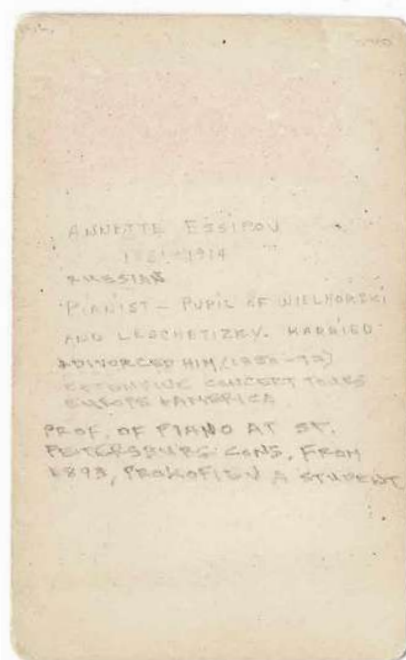 ANNETTE ESSIPOV
1914
RUSSIAN
PIANIST – PUPIL OF WIELHORSKI
AND LESCHETIZKY. MARRIED
+ DIVORCED HIM (1880–92)
EXTENSIVE CONCERT TOURS
EUROPE + AMERICA
PROF. OF PIANO AT ST.
PETERSBURG CONS, FROM
1893, PROKOFIEV A STUDENT